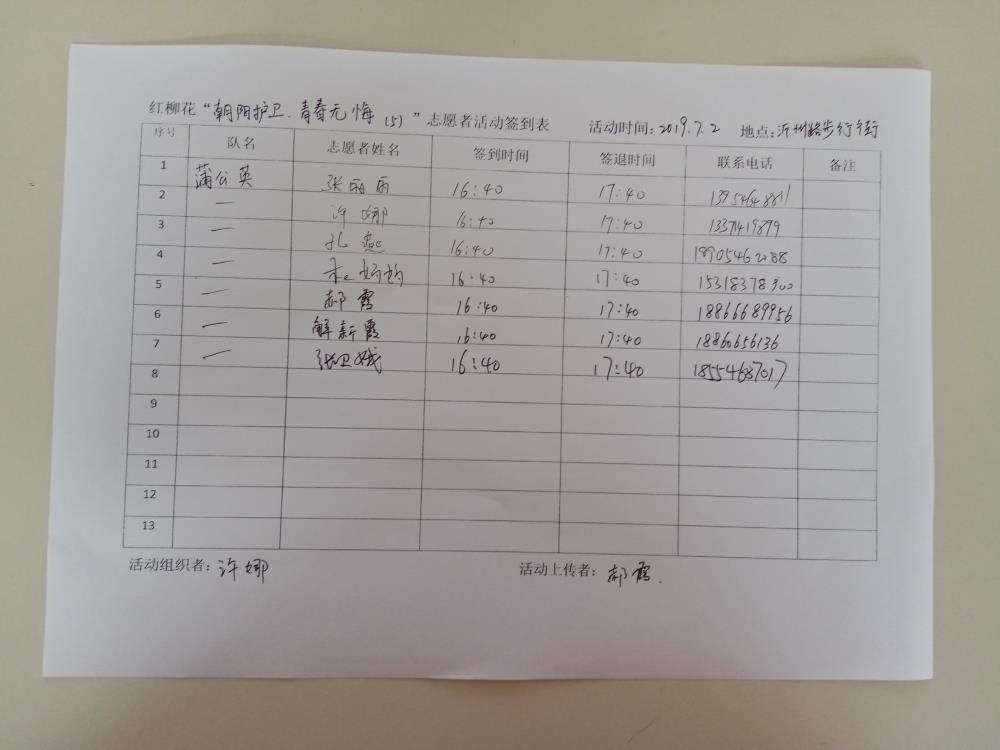 红柳花“朝阳护卫.青春无悔(5)”志愿者活动签到表 活动时间:2019.7.2 地点:沂州路步行街
序号 队名 志愿者姓名 签到时间 签退时间 联系电话 备注
1 蒲公英 张丽丽 16:40 17:40
2 — 许娜 16:40 17:40
3 — 孔燕 16:40 17:40
4 — 16:40 17:40
5 — 郝霞 16:40 17:40 18866689956
6 — 解新霞 16:40 17:40 18860656136
7 — 张卫娥 16:40 17:40 18554687017
8
9
10
11
12
13
活动组织者:许娜 活动上传者:郝霞.